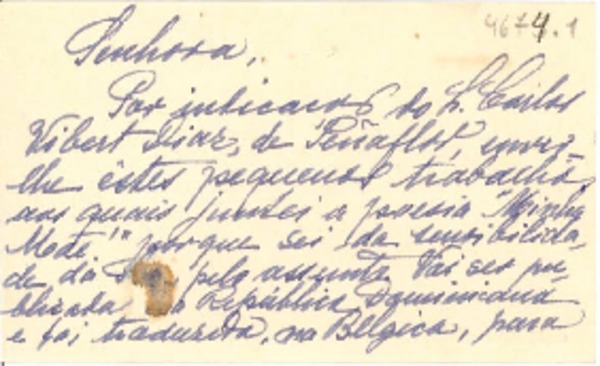 4674.1
Senhora,
Por indicação do Sr. Carlos
Vibert Diaz, de "Peñaflor, envio-
lhe êstes pequenos trabalhos
aos quais juntei a poesia "Minha
Mãe" porque sei da sensibilida-
de da pelo assunto. Vai ser pu-
blicada República Dominicana
e foi traduzida, na Belgica, para